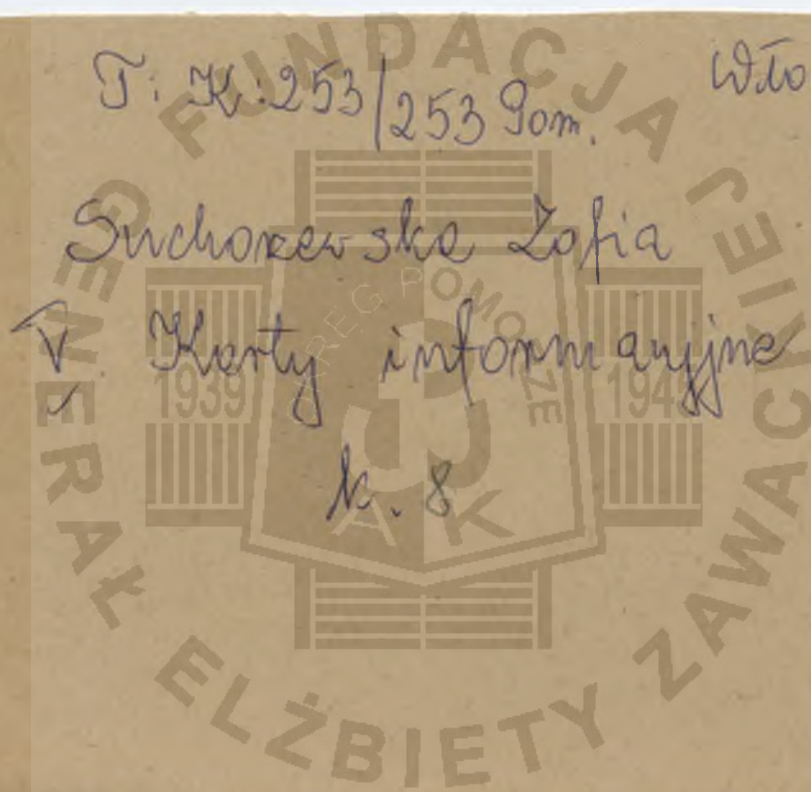 T: K: 253/253 Pom. Wło
Suchorzewska Zofia
V. Karty informacyjne
k. 8
FUNDACJA GENERAŁ ELŻBIETY ZAWACKIEJ
OKRĘG POMORZE
1939 1945
AK